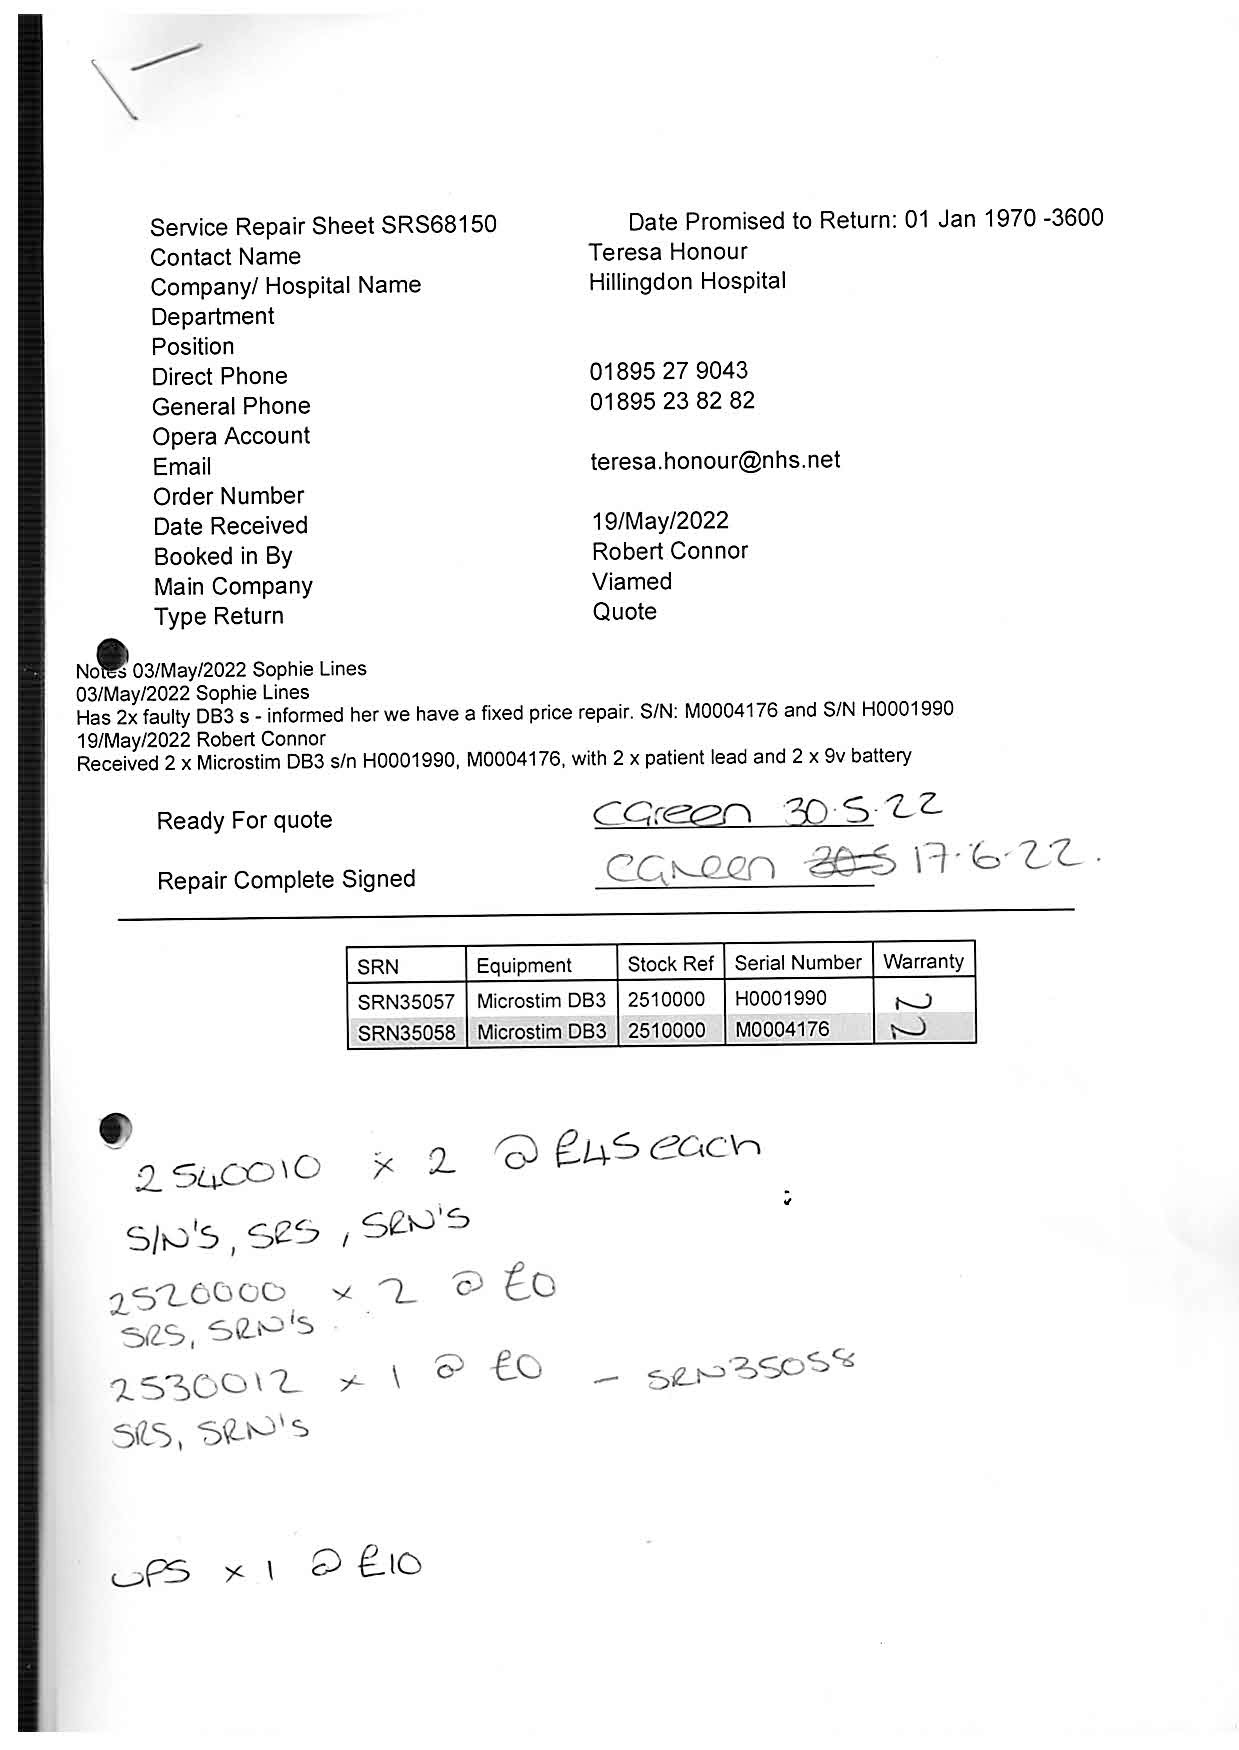 Service Repair Sheet SRS68150 Date Promised to Return: 01 Jan 1970 -3600
Contact Name Teresa Honour
Company/ Hospital Name Hillingdon Hospital
Department
Position
Direct Phone 01895 27 9043
General Phone 01895 23 82 82
Opera Account
Email teresa.honour@nhs.net
Order Number
Date Received 19/May/2022
Booked in By Robert Connor
Main Company Viamed
Type Return Quote
Notes 03/May/2022 Sophie Lines
03/May/2022 Sophie Lines
Has 2x faulty DB3 s - informed her we have a fixed price repair. S/N: M0004176 and S/N H0001990
19/May/2022 Robert Connor
Received 2 x Microstim DB3 s/n H0001990, M0004176, with 2 x patient lead and 2 x 9v battery
Ready For quote CGreen 30.5.22
Repair Complete Signed CGreen 30 5 17.6.22.
SRN Equipment Stock Ref Serial Number Warranty
SRN35057 Microstim DB3 2510000 H0001990 N
SRN35058 Microstim DB3 2510000 M0004176 N
2540010 x 2 @ £45 each
S/N'S, SRS, SRN'S
2520000 x 2 @ £0
SRS, SRN'S
2530012 x 1 @ £0 - SRN35058
SRS, SRN'S
UPS x 1 @ £10